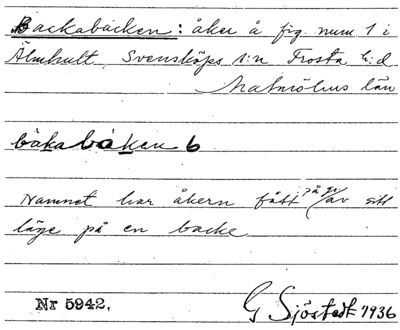 Backabacken: åker å fig. num 1 i
Älmhult, Svensköps s:n Frosta h:d
Malmöhus län
bakabåken b
Namnet har åkern fått på gr av sitt
läge på en backe
Nr 5942. G Sjöstedt 1936